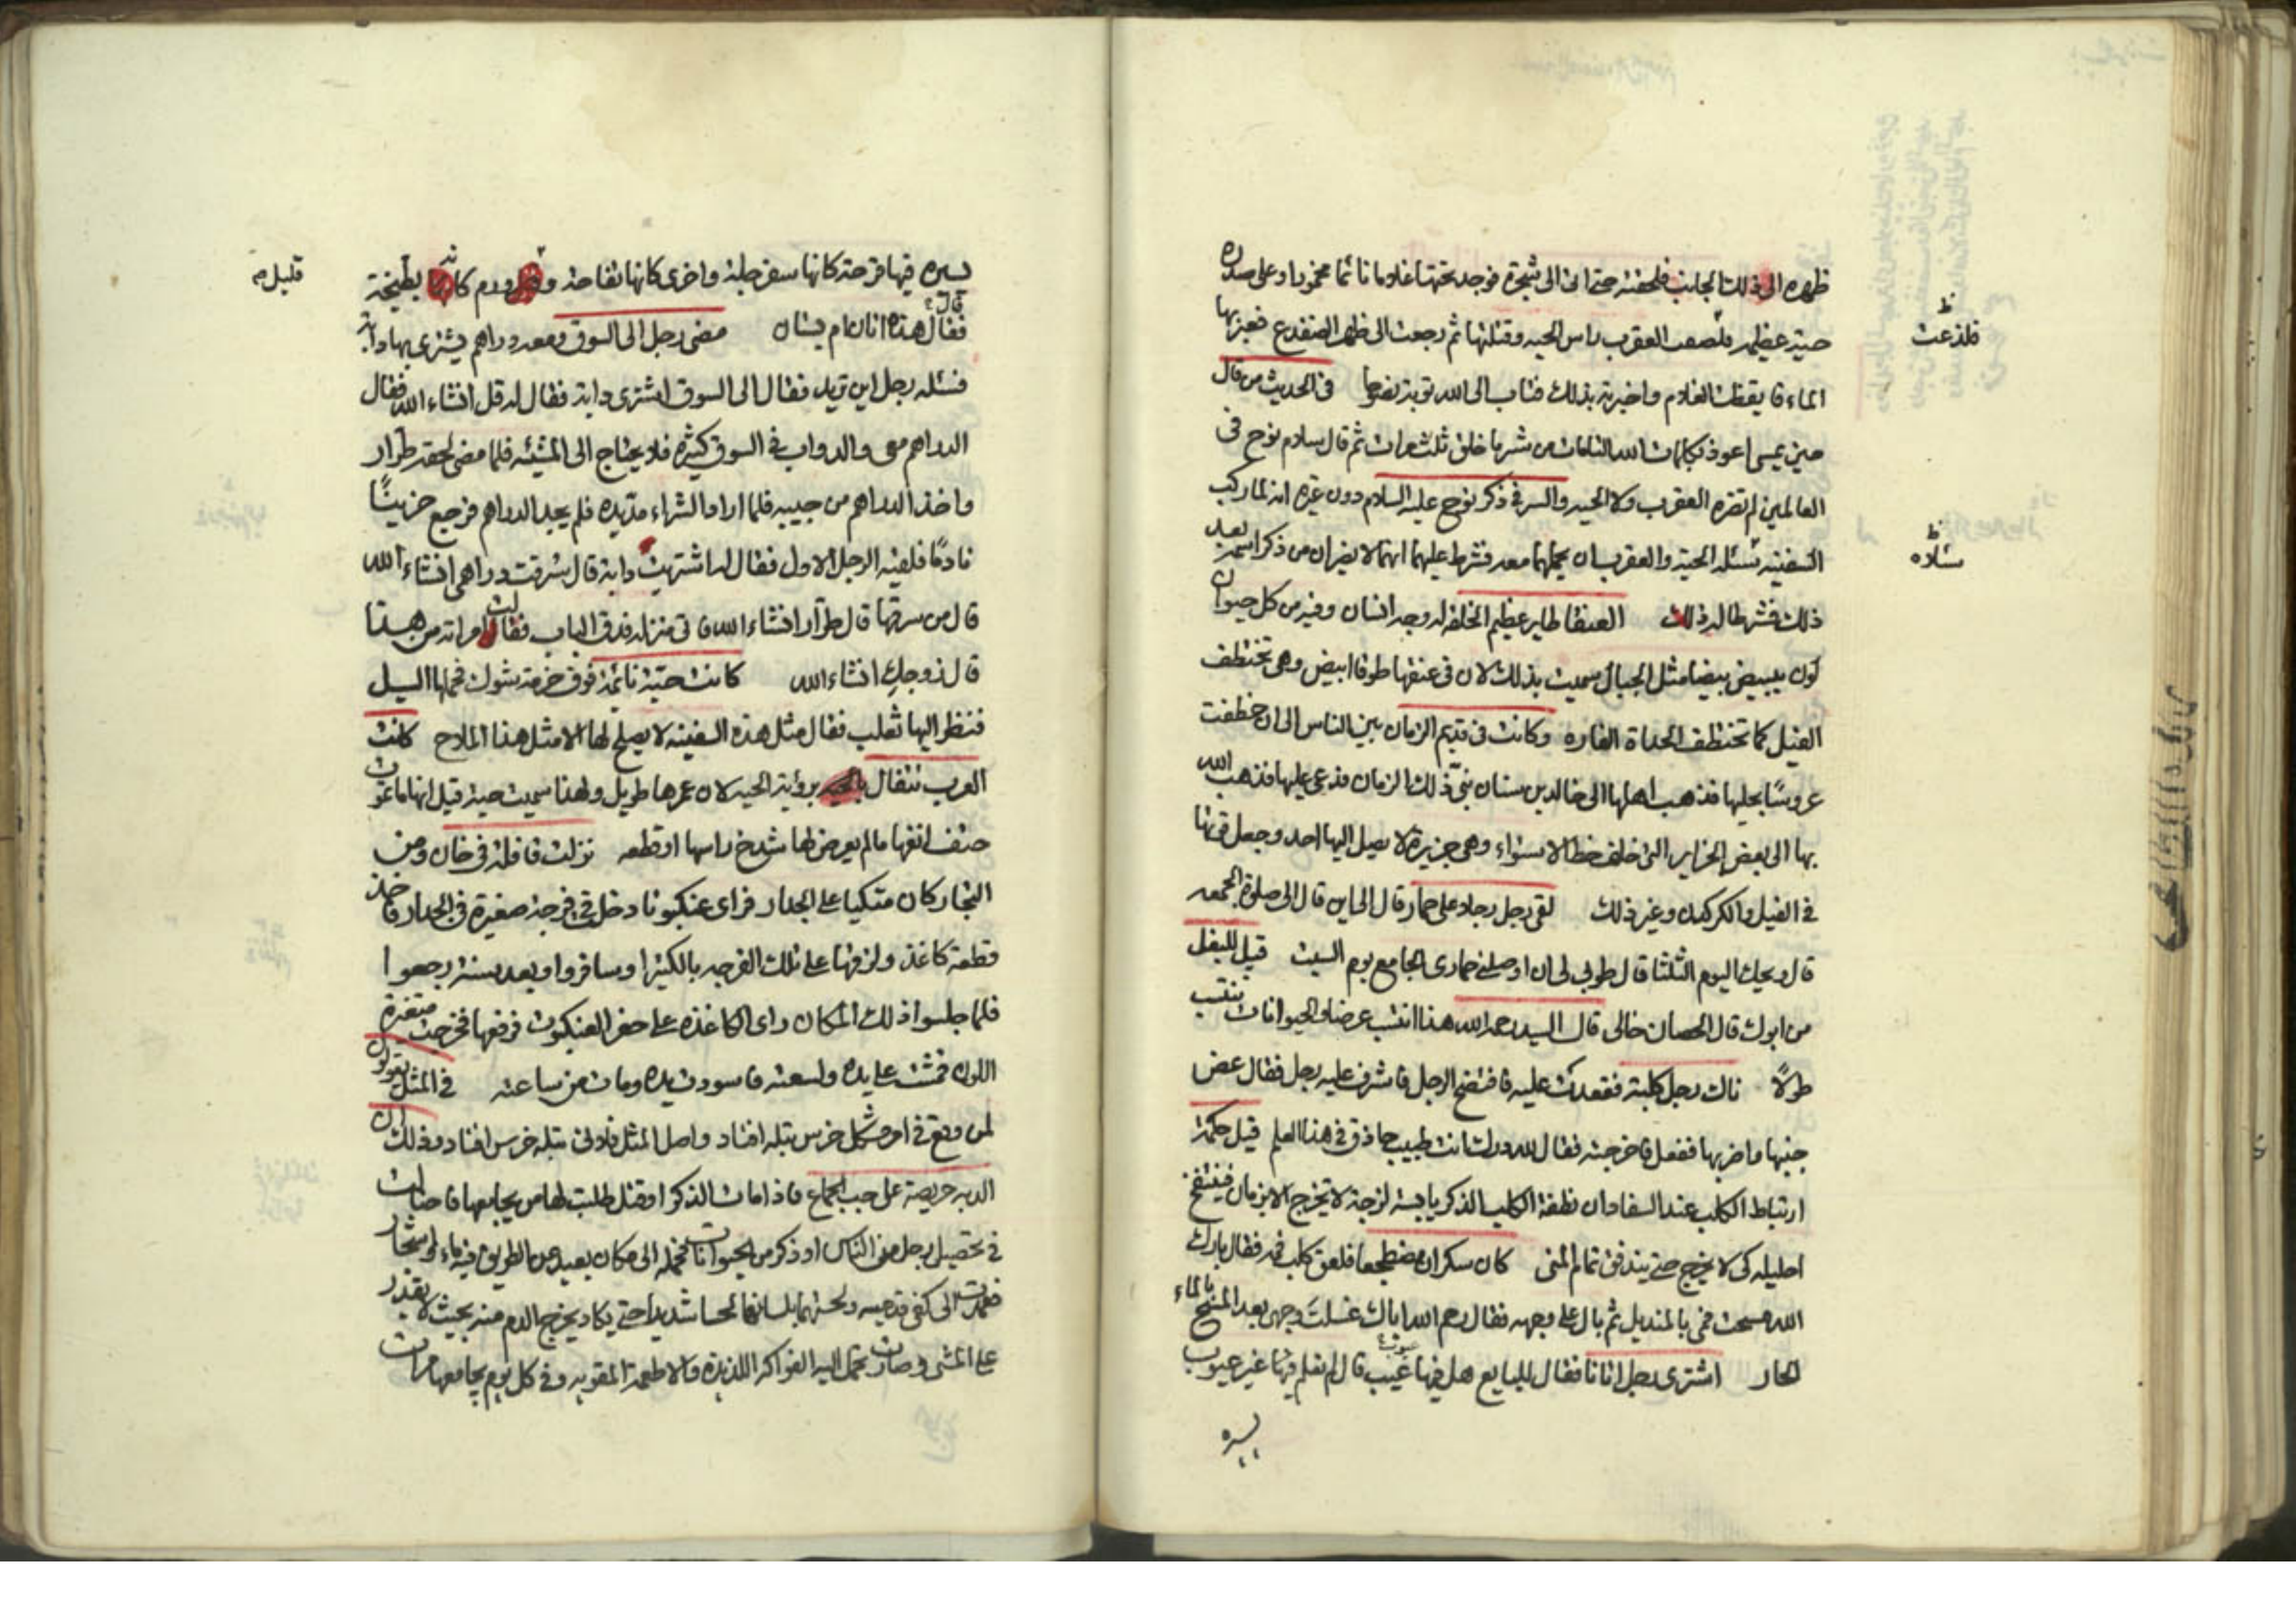 ظهره الى ذلك الجانب فلحقته حتى اتى الى شجرة فوجد تحتها غلاما نائما مخمورا وعلى صدره
حية عظيمه فلصقت العقرب براس الحيه وقتلتها ثم رجعت الى ظهر الضفدع فعبر بها
فلذعت
الماء فايقظت الغلام واخبرته بذلك فتاب الى الله توبة نصوحا في الحديث من قال
حين يمسى اعوذ بكلمات الله التامات من شر ما خلق ثلث مرات ثم قال سلام نوح فى
العالمين لم تضره العقرب ولا الحيه والسر في ذكر نوح عليه السلام دون غيره انه لما ركب
السفينه سئله الحية والعقرب ان يحملهما معه فشرط عليهما انهما لا يضران من ذكر اسمه بعد
سئلاه
ذلك فشرطا له ذلك العنقا طاير عظيم الخلقه له وجه انسان وفيه من كل حيوان
لون يبيض بيضا مثل الجبال سميت بذلك لان فى عنقها طوقا ابيض وهى تختطف
الفيل كما تختطف الحداة الفاره وكانت فى قديم الزمان بين الناس الى ان خطفت
عروسا بحليها فذهب اهلها الى خالد بن سنان نبى ذلك الزمان فدعى عليها فذهب الله
بها الى بعض الجزاير التى خلف خط الاستواء وهى جزيرة لا يصل اليها احد وجعل قوتها
في الفيل والكركدن وغير ذلك لقى رجل رجلا على حمار قال الى اين قال الى صلوة الجمعه
قال ويحك اليوم الثلثا قال طوبى لى ان اوصلنى حمارى الجامع يوم السبت قيل للبغل
من ابوك قال الحصان خالى قال السيد رحمه الله هذا انتسب عرضا والحيوانات ينتسب
طولا ناك رجل كلبة فعقدت عليه فافتضح الرجل فاشرف عليه رجل فقال عض
جنبها واضربها ففعل فاخرجته فقال لله درك انت طبيب حاذق في هذا العلم قيل حكمة
ارتباط الكلب عند السفاد ان نطفة الكلب الذكر يابسة لزجة لا تخرج الا بزمان فينتفخ
احليله كى لا يخرج حتى يندفق تمام المنى كان سكران مضطجعا فلعق كلب فمه فقال بارك
الله مسحت فمى بالمنديل ثم بال على وجهه فقال رحم الله اباك غسلت وجهى بعد المسح بالماء
الحار اشترى رجل اتانا فقال للبايع هل فيها عيب قال لم نعلم فيها غير عيوب
يسيره
يسيره فيها قرحة كانها سفرجلة واخرى كانها تفاحة وورم كانه بطيخة
قليل
فقال هذه اتان ام بستان مضى رجل الى السوق ومعه دراهم يشترى بها دابة
فسئله رجل اين تريد فقال الى السوق اشترى دابة فقال له قل انشاء الله فقال
الدراهم معى والدواب فى السوق كثيره فلا يحتاج الى المشيئه فلما مضى لحقه طرار
واخذ الدراهم من جيبه فلما اراد الشراء مد يده فلم يجد الدراهم فرجع حزينًا
نادمًا فلقيه الرجل الاول فقال له اشتريت دابة قال سرقت دراهمى انشاء الله
قال من سرقها قال طرار انشاء الله فاتى منزله فدق الباب فقالت امراته من هذا
قال زوجك انشاء الله كانت حية نائمة فوق خرمة شوك فحملها السيل
فنظر اليها ثعلب فقال مثل هذه السفينه لا يصلح لها الا مثل هذا الملاح كانت
العرب تتفال برؤية الحيه لان عمرها طويل ولهذا سميت حية قيل انها ما تموت
حتف انفها ما لم يعرض لها شدخ راسها او قطعه نزلت قافلة فى خان ومن
التجار كان متكيا على الجدار فراى عنكبوتا دخل فى فرجة صغيرة فى الجدار فاخذ
قطعة كاغذ ولزقها على تلك الفرجه بالكتيرا وسافروا وبعد سنة رجعوا
فلما جلسوا ذلك المكان راى الكاغذة على حفر العنكبوت فرفعها فخرجت متغيرة
اللون فمشت على يده ولسعته فاسودت يده ومات من ساعته في المثل يقولون
لمن وقع فى امر مشكل خرس بتله افتاد واصل المثل فلانى بتله خرس افتاد وذلك ان
الدبه حريصة على حب الجماع فاذا مات الذكر او قتل طلبت لها من يجامعها فاحتالت
فى تحصيل رجل من الناس او ذكر من الحيوانات فحمله الى مكان بعيد عن الطريق فيه ماء واشجار
فعمدت الى كفى قدميه ولحستهما بلسانها لحسا شديدا حتى يكاد يخرج الدم منه بحيث لا يقدر
على المشى وصارت تحمل اليه الفواكه اللذيذه والاطعمة المقويه وفى كل يوم يجامعها مرات